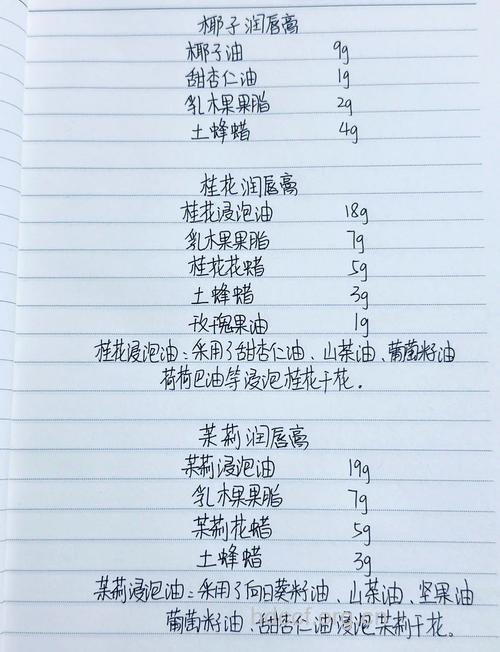 椰子润唇膏
椰子油 9g
甜杏仁油 1g
乳木果果脂 2g
土蜂蜡 4g
桂花润唇膏
桂花浸泡油 18g
乳木果果脂 7g
桂花花蜡 5g
土蜂蜡 3g
玫瑰果油 1g
桂花浸泡油:采用了甜杏仁油、山茶油、葡萄籽油
荷荷巴油等浸泡桂花干花.
茉莉润唇膏
茉莉浸泡油 19g
乳木果果脂 7g
茉莉花蜡 5g
土蜂蜡 3g
茉莉浸泡油:采用了向日葵籽油、山茶油、坚果油
葡萄籽油、甜杏仁油浸泡茉莉干花。